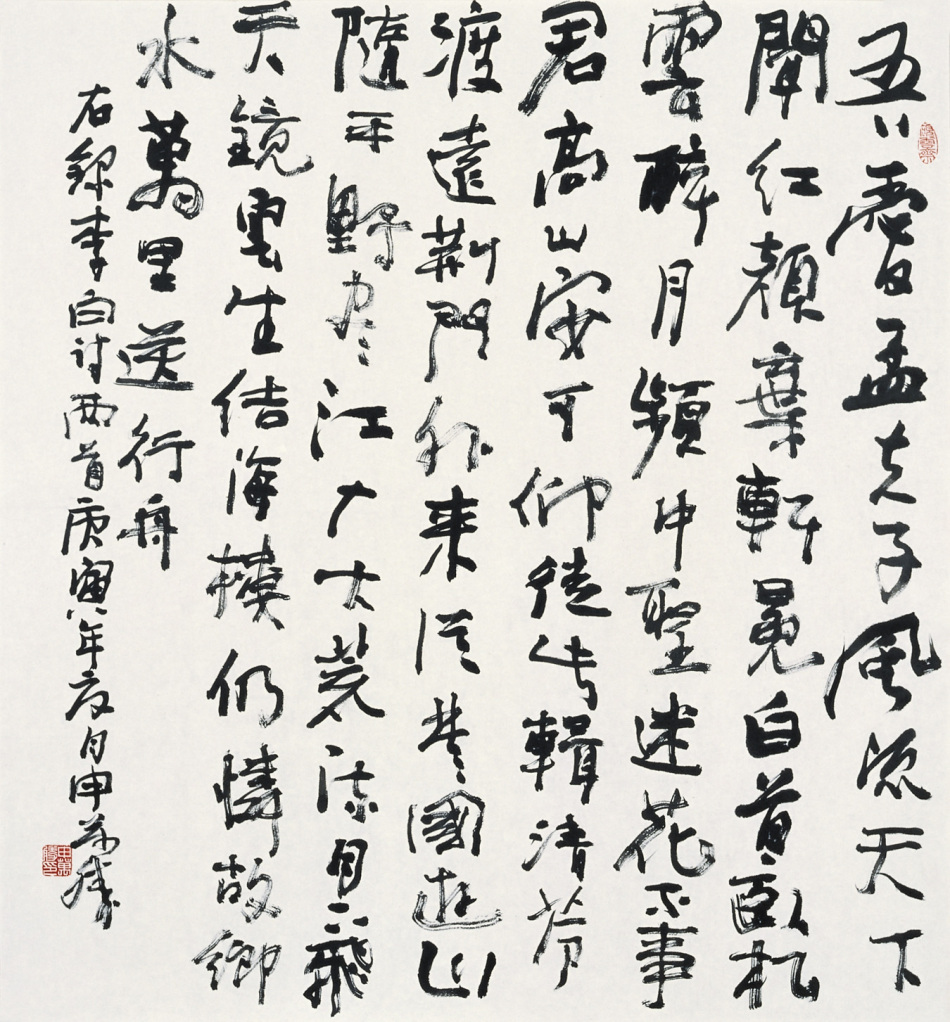 吾愛孟夫子風流天下
聞紅顏棄軒冕白首臥松
雲醉月頻中聖迷花不事
君高山安可仰徒此輯清芬
渡遠荊門外來從楚國遊山
隨平野盡江入大荒流月下飛
天鏡雲生結海樓仍憐故鄉
水萬里送行舟
右錄李白詩兩首庚寅年夏月申萬勝